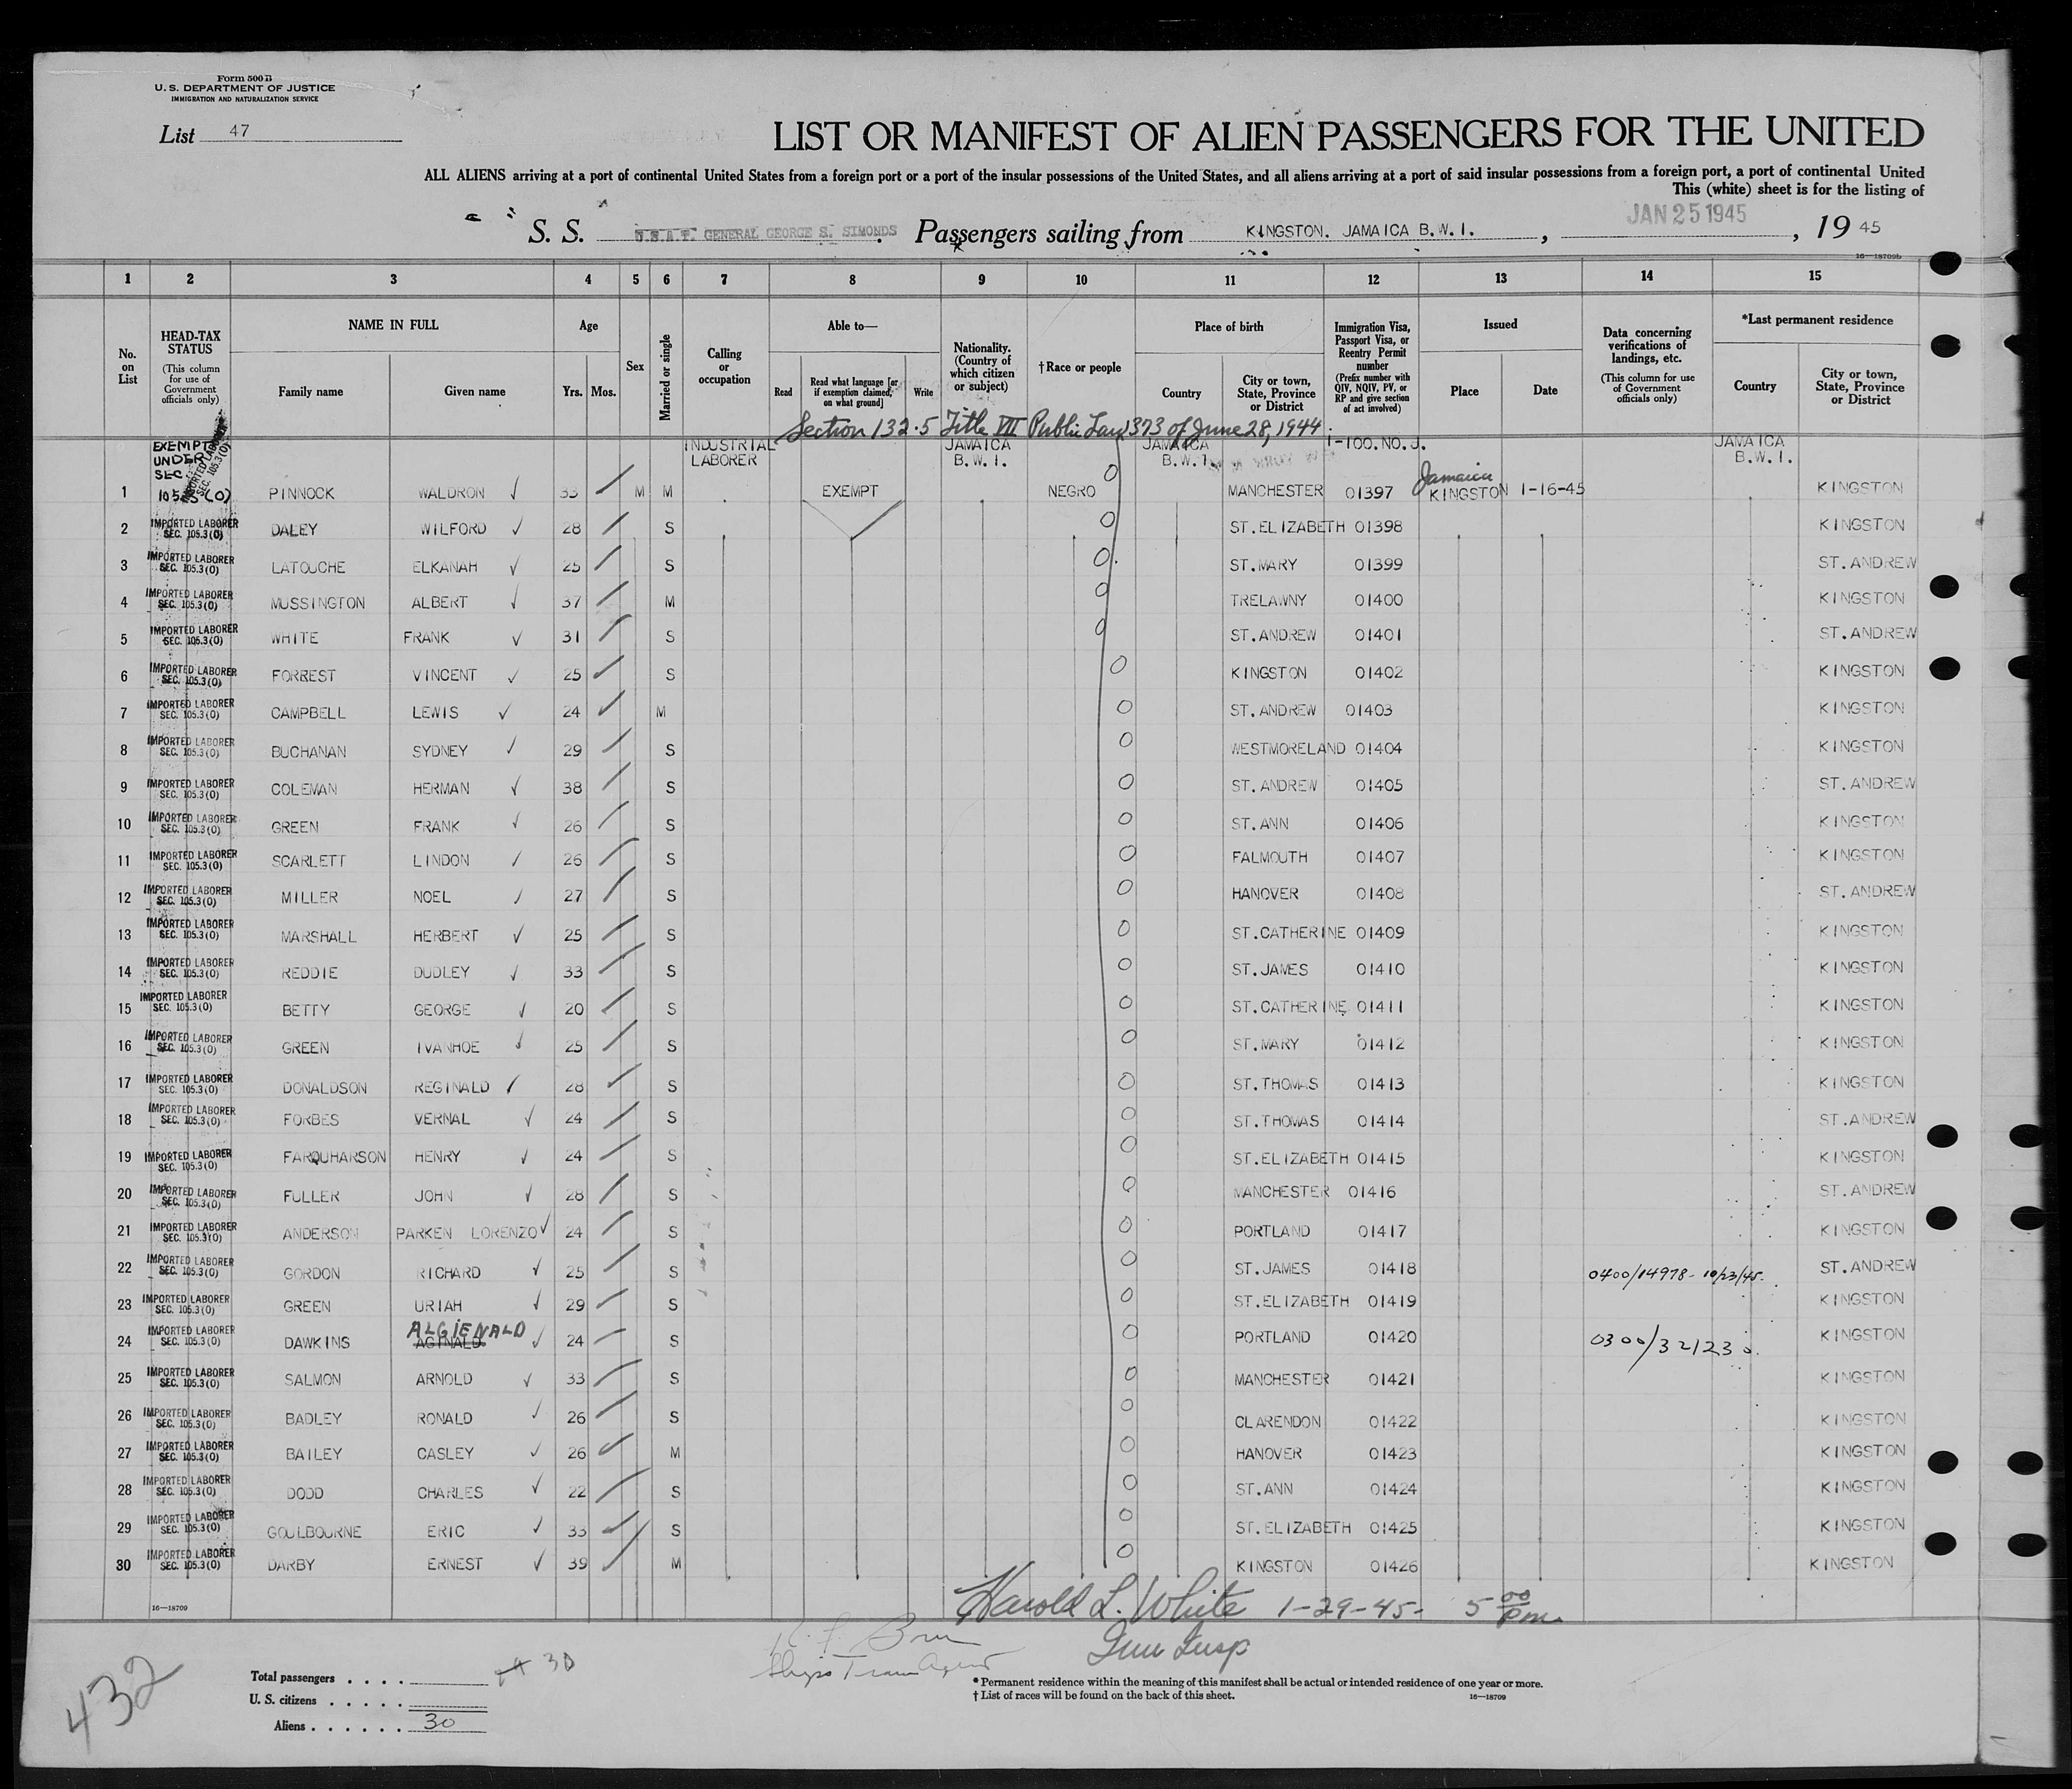 Form 500 B
U. S. DEPARTMENT OF JUSTICE
IMMIGRATION AND NATURALIZATION SERVICE
List 47
LIST OR MANIFEST OF ALIEN PASSENGERS FOR THE UNITED
ALL ALIENS arriving at a port of continental United States from a foreign port or a port of the insular possessions of the United States, and all aliens arriving at a port of said insular possessions from a foreign port, a port of continental United
This (white) sheet is for the listing of
S. S. U.S.A.T. GENERAL GEORGE S. SIMONDS Passengers sailing from KINGSTON. JAMAICA B.W.I., JAN 25 1945, 19 45
16—18709b
1 2 3 4 5 6 7 8 9 10 11 12 13 14 15
No. on List
HEAD-TAX STATUS (This column for use of Government officials only)
NAME IN FULL
Family name Given name
Age
Yrs. Mos.
Sex
Married or single
Calling or occupation
Able to—
Read Read what language [or if exemption claimed, on what ground] Write
Nationality. (Country of which citizen or subject)
† Race or people
Place of birth
Country City or town, State, Province or District
Immigration Visa, Passport Visa, or Reentry Permit number (Prefix number with QIV, NQIV, PV, or RP and give section of act involved)
Issued
Place Date
Data concerning verifications of landings, etc. (This column for use of Government officials only)
*Last permanent residence
Country City or town, State, Province or District
Section 132.5 Title VII Public Law 373 of June 28, 1944.
EXEMPT UNDER SEC 105.3 (O) IMPORTED LABORER SEC. 105.3(O)
INDUSTRIAL LABORER JAMAICA B.W.I. JAMAICA B.W.I. I-100.NO.J. JAMAICA B.W.I.
1 PINNOCK WALDRON 33 M M EXEMPT NEGRO MANCHESTER 01397 Jamaica KINGSTON 1-16-45 KINGSTON
2 IMPORTED LABORER SEC. 105.3(O) DALEY WILFORD 28 S ST.ELIZABETH 01398 KINGSTON
3 IMPORTED LABORER SEC. 105.3(O) LATOUCHE ELKANAH 25 S ST.MARY 01399 ST.ANDREW
4 IMPORTED LABORER SEC. 105.3(O) MUSSINGTON ALBERT 37 M TRELAWNY 01400 KINGSTON
5 IMPORTED LABORER SEC. 105.3(O) WHITE FRANK 31 S ST.ANDREW 01401 ST.ANDREW
6 IMPORTED LABORER SEC. 105.3(O) FORREST VINCENT 25 S KINGSTON 01402 KINGSTON
7 IMPORTED LABORER SEC. 105.3(O) CAMPBELL LEWIS 24 M ST.ANDREW 01403 KINGSTON
8 IMPORTED LABORER SEC. 105.3(O) BUCHANAN SYDNEY 29 S WESTMORELAND 01404 KINGSTON
9 IMPORTED LABORER SEC. 105.3(O) COLEMAN HERMAN 38 S ST.ANDREW 01405 ST.ANDREW
10 IMPORTED LABORER SEC. 105.3(O) GREEN FRANK 26 S ST.ANN 01406 KINGSTON
11 IMPORTED LABORER SEC. 105.3(O) SCARLETT LINDON 26 S FALMOUTH 01407 KINGSTON
12 IMPORTED LABORER SEC. 105.3(O) MILLER NOEL 27 S HANOVER 01408 ST.ANDREW
13 IMPORTED LABORER SEC. 105.3(O) MARSHALL HERBERT 25 S ST.CATHERINE 01409 KINGSTON
14 IMPORTED LABORER SEC. 105.3(O) REDDIE DUDLEY 33 S ST.JAMES 01410 KINGSTON
15 IMPORTED LABORER SEC. 105.3(O) BETTY GEORGE 20 S ST.CATHERINE 01411 KINGSTON
16 IMPORTED LABORER SEC. 105.3(O) GREEN IVANHOE 25 S ST.MARY 01412 KINGSTON
17 IMPORTED LABORER SEC. 105.3(O) DONALDSON REGINALD 28 S ST.THOMAS 01413 KINGSTON
18 IMPORTED LABORER SEC. 105.3(O) FORBES VERNAL 24 S ST.THOMAS 01414 ST.ANDREW
19 IMPORTED LABORER SEC. 105.3(O) FARQUHARSON HENRY 24 S ST.ELIZABETH 01415 KINGSTON
20 IMPORTED LABORER SEC. 105.3(O) FULLER JOHN 28 S MANCHESTER 01416 ST.ANDREW
21 IMPORTED LABORER SEC. 105.3(O) ANDERSON PARKEN LORENZO 24 S PORTLAND 01417 KINGSTON
22 IMPORTED LABORER SEC. 105.3(O) GORDON RICHARD 25 S ST.JAMES 01418 0400/14978-10/23/45. ST.ANDREW
23 IMPORTED LABORER SEC. 105.3(O) GREEN URIAH 29 S ST.ELIZABETH 01419 KINGSTON
24 IMPORTED LABORER SEC. 105.3(O) DAWKINS ALGIENALD AGINALD 24 S PORTLAND 01420 0300/32123 KINGSTON
25 IMPORTED LABORER SEC. 105.3(O) SALMON ARNOLD 33 S MANCHESTER 01421 KINGSTON
26 IMPORTED LABORER SEC. 105.3(O) BADLEY RONALD 26 S CLARENDON 01422 KINGSTON
27 IMPORTED LABORER SEC. 105.3(O) BAILEY CASLEY 26 M HANOVER 01423 KINGSTON
28 IMPORTED LABORER SEC. 105.3(O) DODD CHARLES 22 S ST.ANN 01424 KINGSTON
29 IMPORTED LABORER SEC. 105.3(O) GOULBOURNE ERIC 33 S ST.ELIZABETH 01425 KINGSTON
30 IMPORTED LABORER SEC. 105.3(O) DARBY ERNEST 39 M KINGSTON 01426 KINGSTON
16—18709
Harold L. White 1-29-45- 5 00 pm
Imm Insp
Total passengers . . . . 30
U. S. citizens . . . . .
Aliens . . . . . . 30
432
* Permanent residence within the meaning of this manifest shall be actual or intended residence of one year or more.
† List of races will be found on the back of this sheet.
16—18709